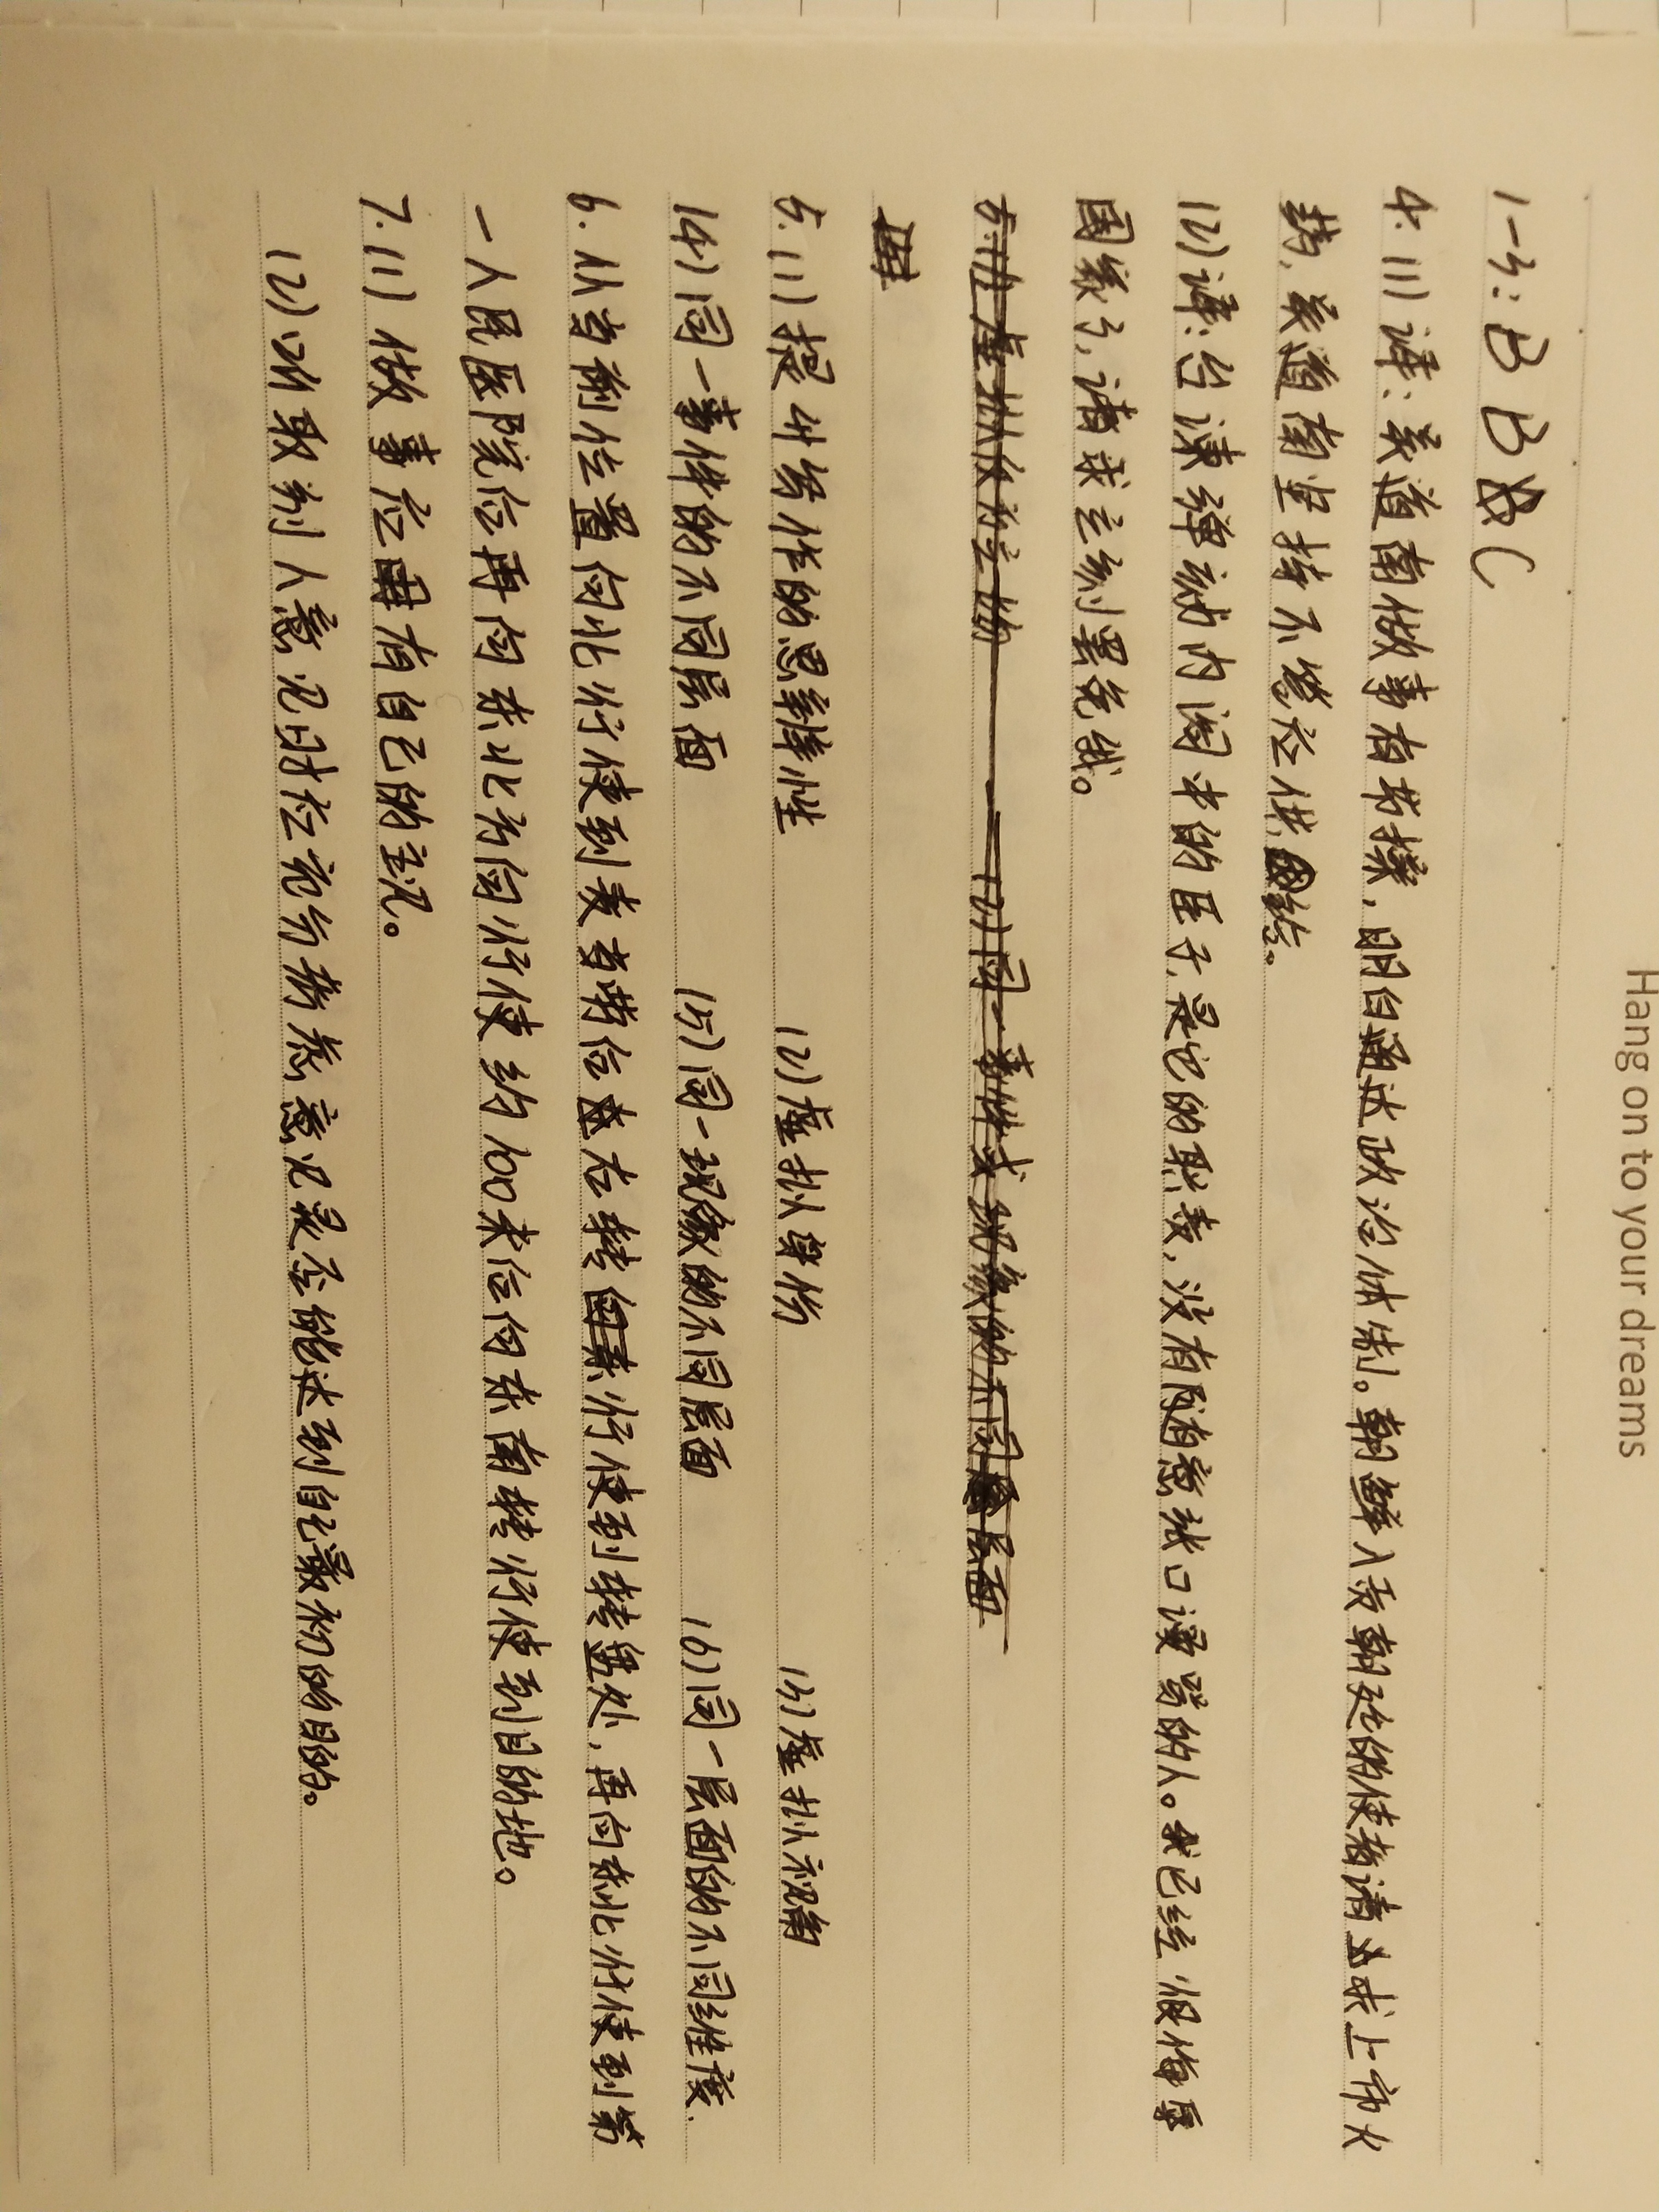 Hang on to your dreams
1-3: B B C
4. (1) 译:吴道南做事有节操,明白通达政治体制。朝鲜入贡朝廷的使者请求上市火
药,吴道南坚持不答应供给。
(2) 译:台谏弹动内阁中的臣子,是它的职责,没有随意张口谩骂的人。我已经 侮辱
国家了,请求立刻罢免我。
5.(1) 虚拟 (2)同一事件或现象的不同层面
5.(1) 提升写作的思辨性 (2)虚拟身份 (3)虚拟视角
(4)同一事件的不同层面 (5)同一现象的不同层面 (6)同一层面的不同维度.
6. 从当前位置向北行使到麦当劳后右转行使到转盘处,再向东北行使到第
一人民医院后再向东北方向行使约100米后向东南转行使到目的地。
7.(1) 做事应有自己的主见。
(2)听取别人意见时应充分考虑意见是否能达到自己最初的目的。